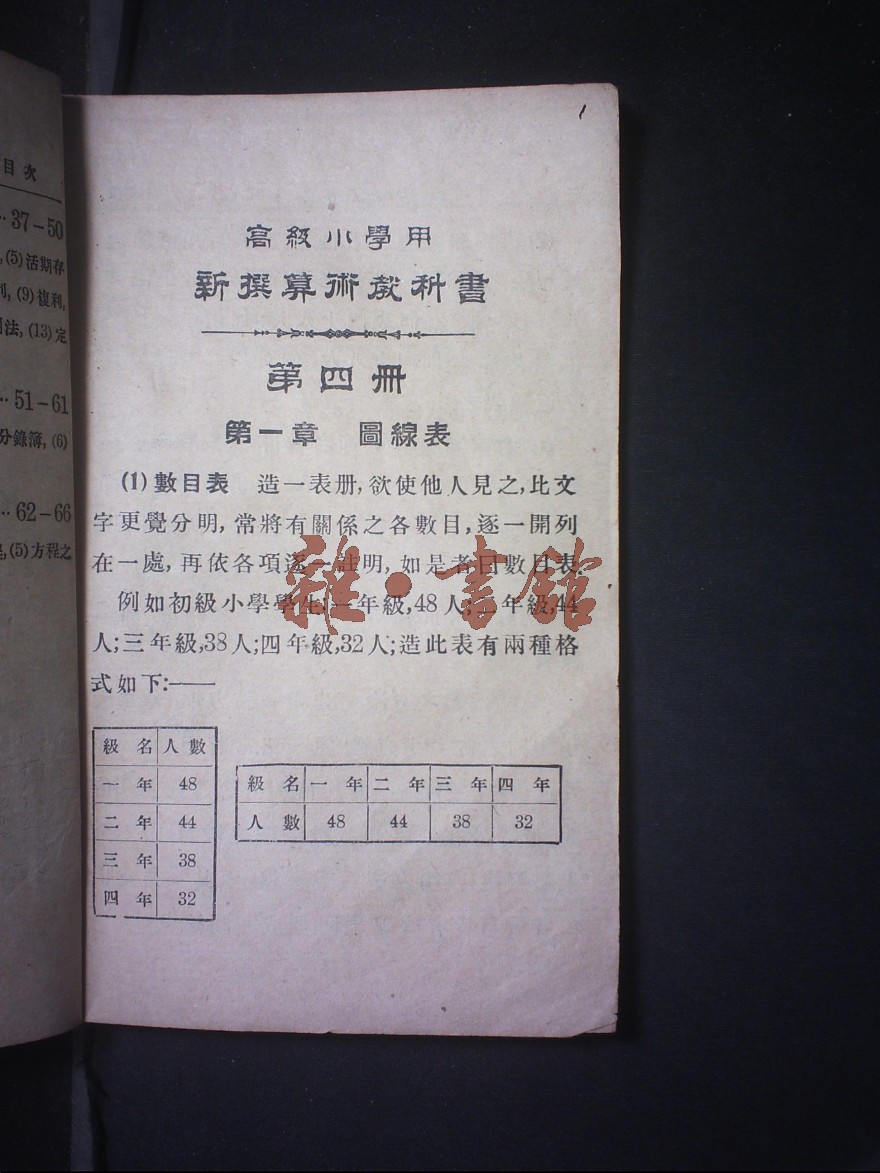 目次
37-50
(5)活期存
(9)複利,
法, (13)定
51-61
分錄簿, (6)
62-66
(5)方程之
1
高級小學用
新撰算術教科書
第四冊
第一章 圖線表
(1) 數目表 造一表册, 欲使他人見之, 比文
字更覺分明, 常將有關係之各數目, 逐一開列
在一處, 再依各項逐一註明, 如是者曰數目表.
例如初級小學學生, 一年級, 48人; 二年級, 44
人; 三年級, 38人; 四年級, 32人; 造此表有兩種格
式如下:——
級名 人數
一年 48
二年 44
三年 38
四年 32
級名 一年 二年 三年 四年
人數 48 44 38 32
雜·書館